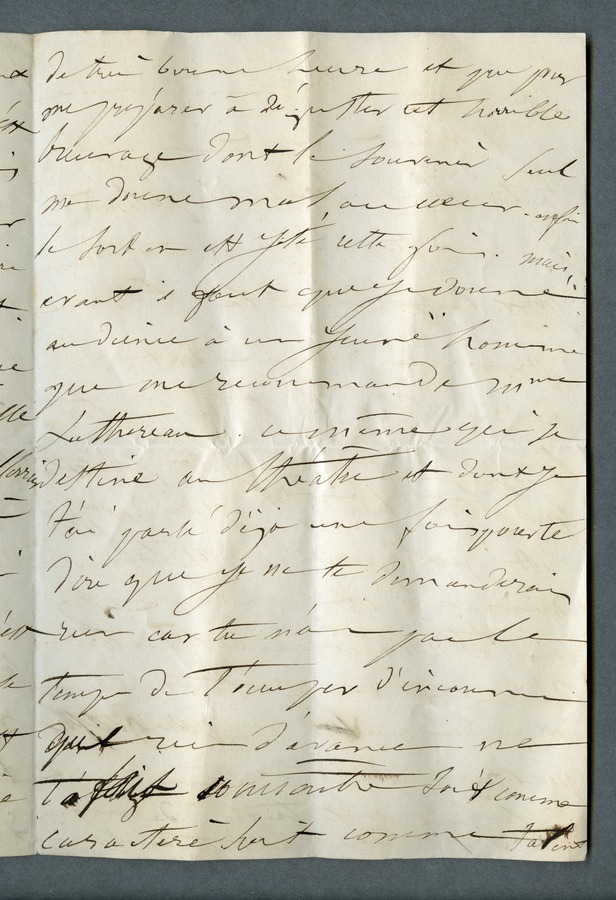 de très bonne heure et que pour
me préparer à déguster cet horrible
breuvage dont le souvenir seul
me donne mal au cœur. enfin
le sort en est jeté cette fois. mais
avant il faut que je donne
audience à un jeune homme
que me recommande Mme
Luthereau. ce même qui se
destine au théâtre et dont je
t'ai parlé déjà une fois pour te
dire que je ne te demanderais
rien car tu n'as pas le
temps de t'occuper d'inconnu
que rien d'avance ne
t'a fait connaître soit comme
caractère soit comme talent